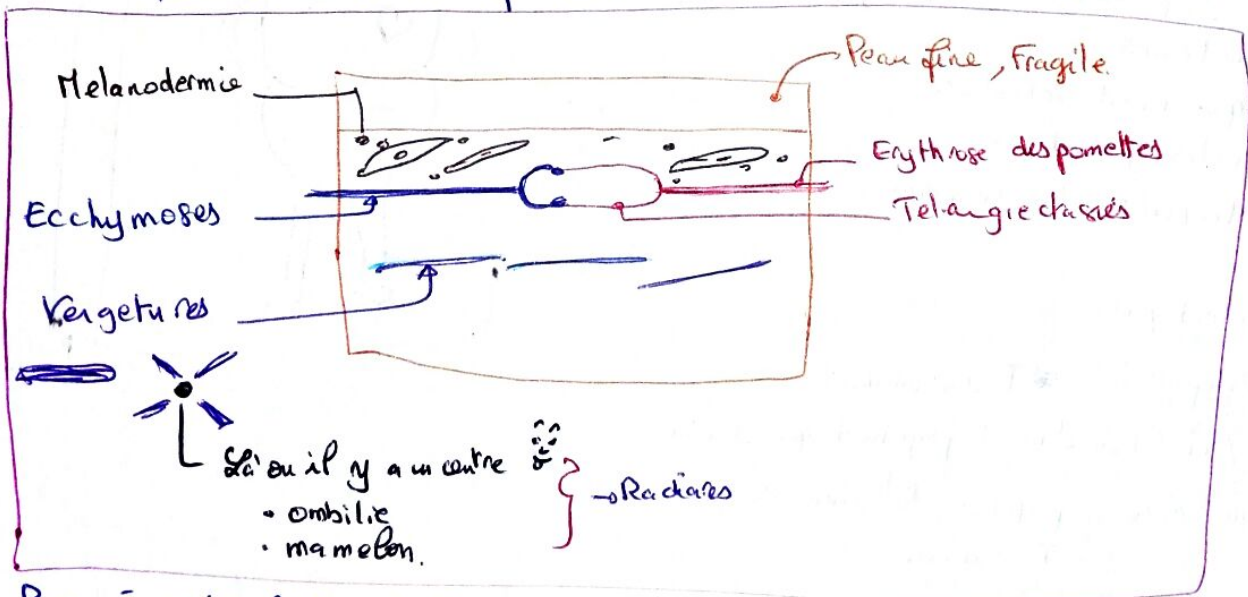 Melanodermie
Peau fine, Fragile.
Erythrose des pomettes
Ecchymoses
Telangiectasies
Vergetures
Là où il y a un centre
• ombilic
• mamelon.
→ Radiaires